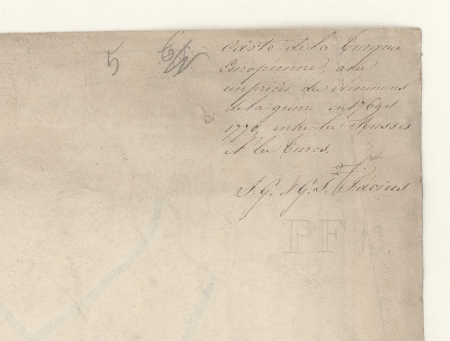 5
Carte de la Turquie
Européenne, avec
un précis des évenemens
de la guerre, en 1769 et
1770, entre les Russes
et les Turcs.
J. G. & G. S. Facius
PF